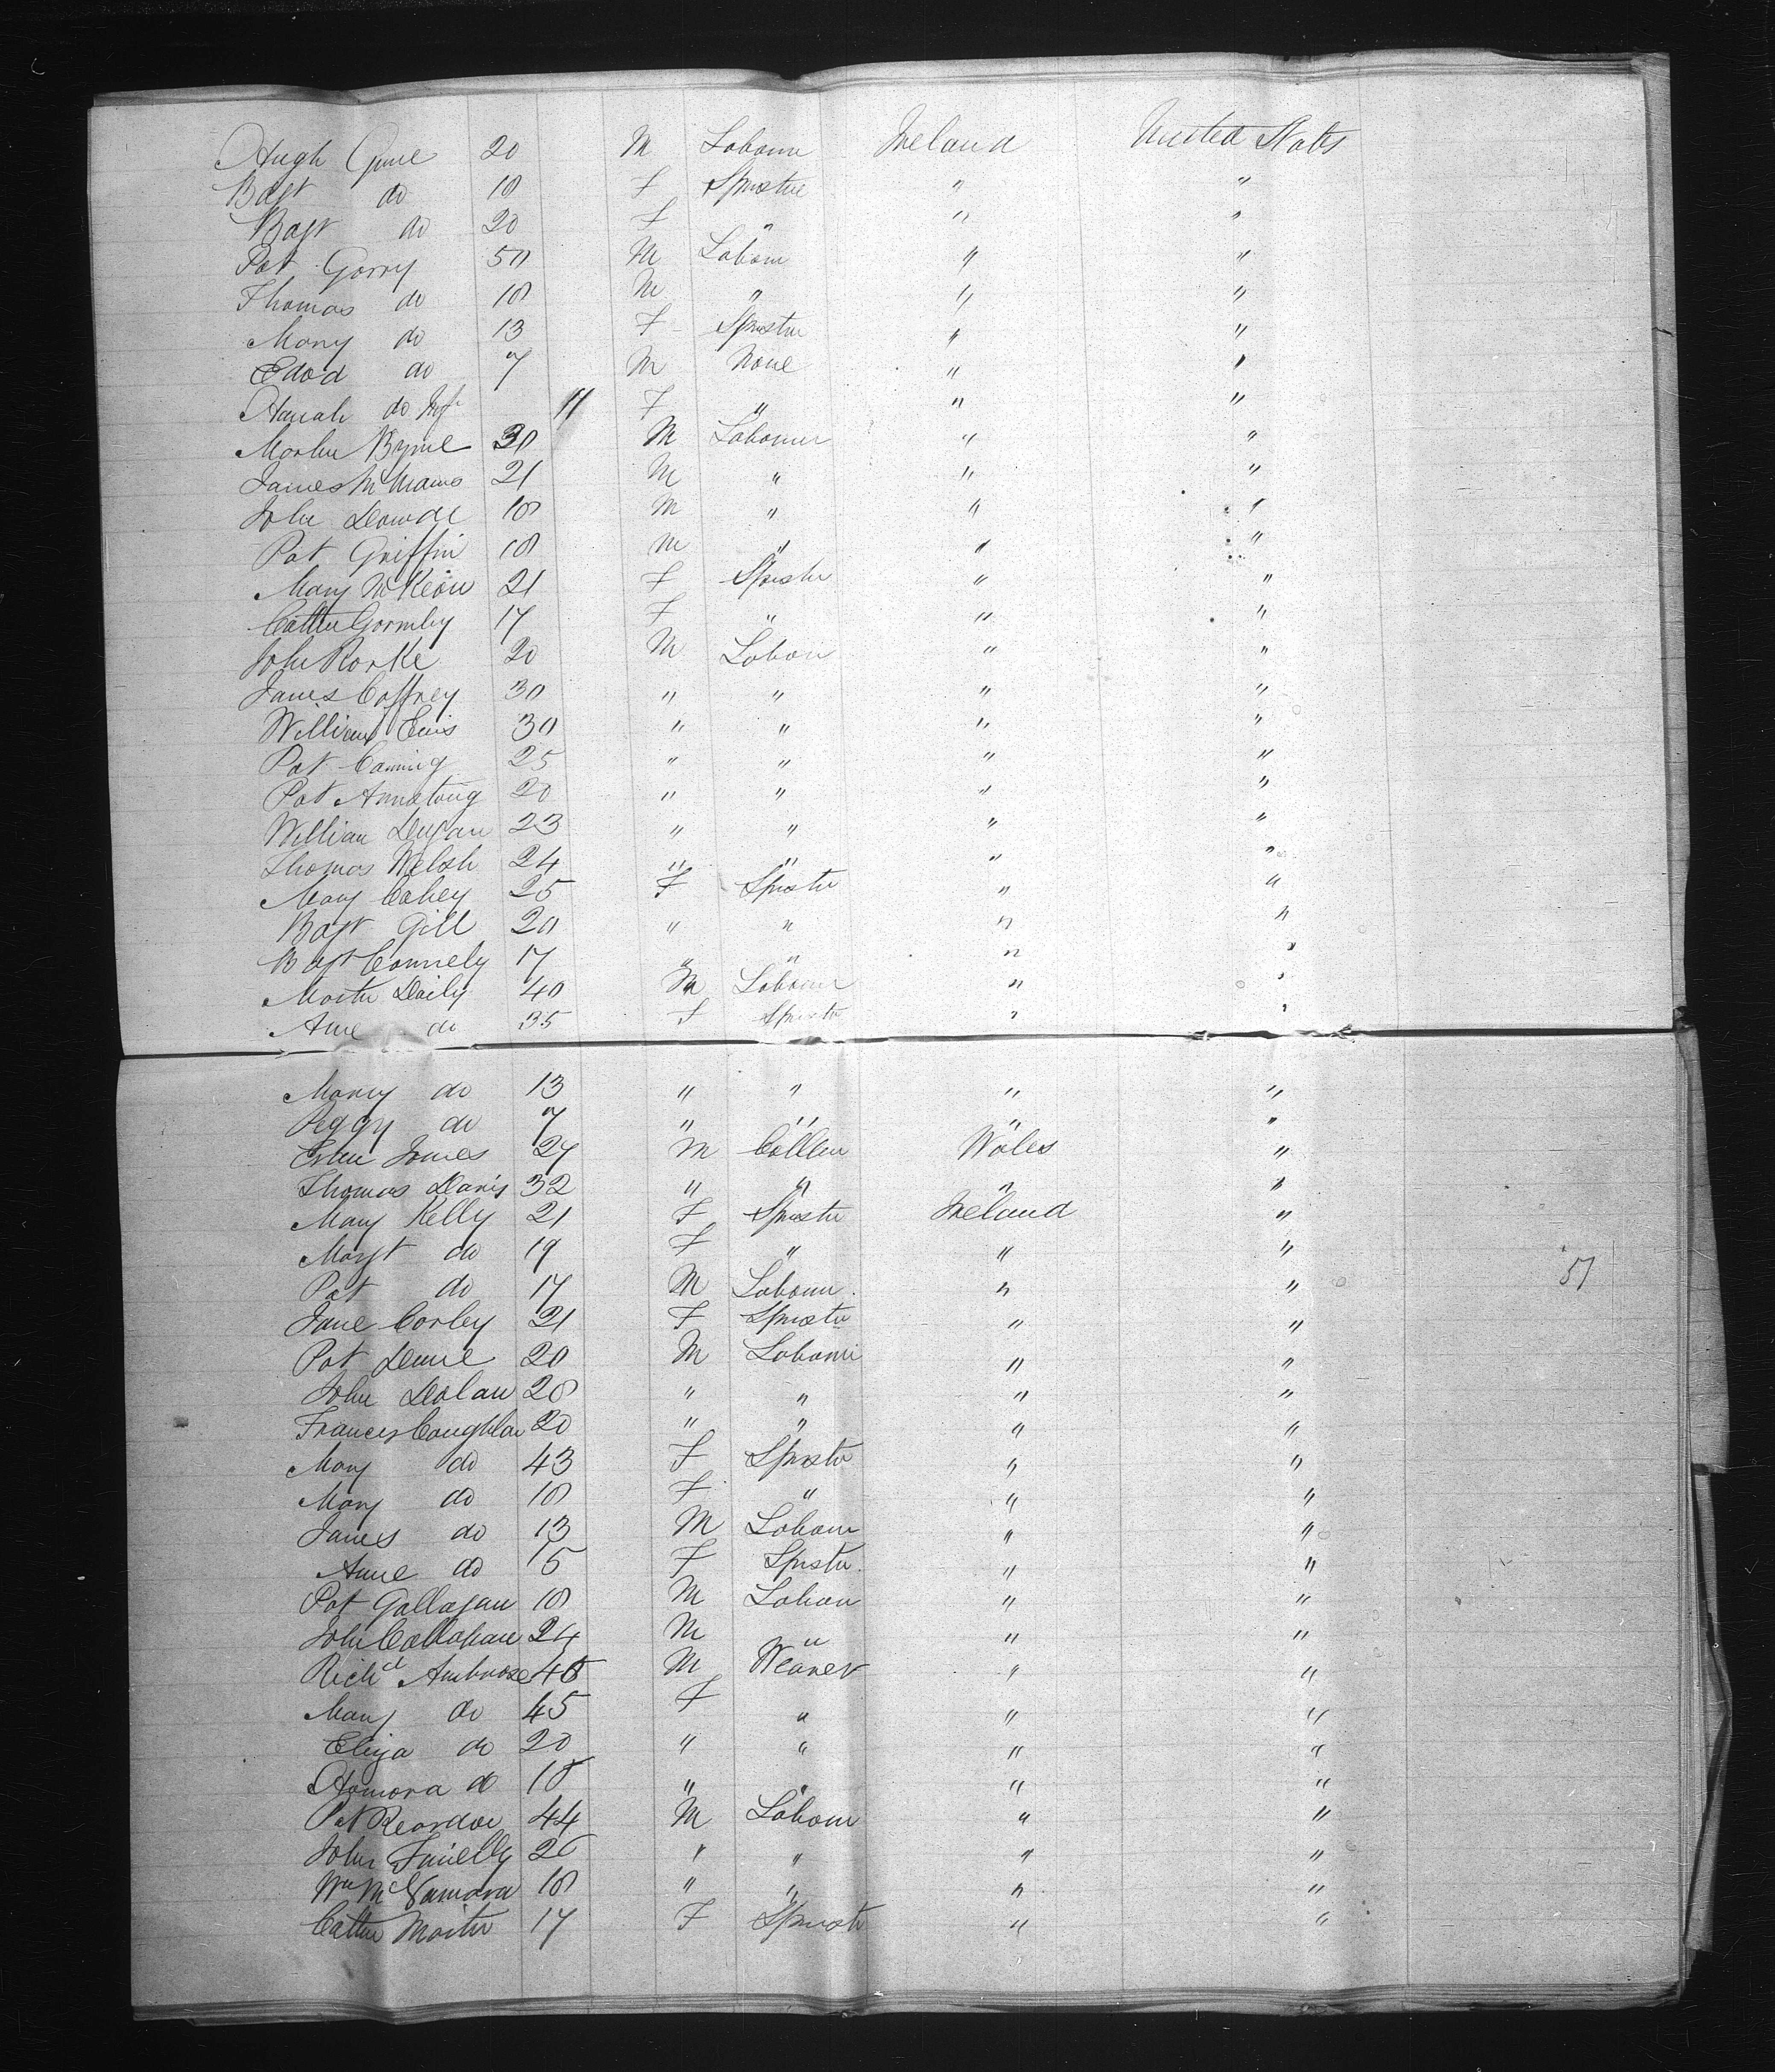 Hugh 20 M Labourer Ireland United States
do 18 F Spinster " "
do 20 F " " "
Pat Gorry 50 M Labourer " "
Thomas do 18 M " " "
Mary do 13 F Spinster " "
Edwd do 7 M None " "
Hanah do Inf 11 F " " "
Martin Byrne 30 M Labourer " "
James 21 M " " "
John 18 M " " "
Pat Griffin 18 M " " "
Mary McKeon 21 F Spinster " "
Cathn Gormley 17 F " " "
John Rorke 20 M Labour " "
James Caffrey 30 " " " "
William 30 " " " "
Pat 25 " " " "
Pat Armstrong 20 " " " "
William Dugan 23 " " " "
Thomas Welsh 24 " " " "
Mary Cahey 25 F Spinster " "
Gill 20 " " " "
Connely 17 " " " "
Martin Daily 40 M Labourer " "
Anne do 35 F Spinster " "
Mary do 13 " " " "
Peggy do 7 " " " "
Evan Jones 27 M Collier Wales "
Thomas Davis 32 " " " "
Mary Kelly 21 F Spinster Ireland "
Margt do 19 F " " "
Pat do 17 M Labour " " 51
Jane Corley 21 F Spinster " "
Pat 20 M Labourer " "
John Dolan 28 " " " "
Frances Coughlan 20 " " " "
Mary do 43 F Spinster " "
Mary do 18 F " " "
James do 13 M Labour " "
Anne do 15 F Spinster " "
Pat Gallagan 18 M Labour " "
John Callahan 24 M " " "
Richd Ambrose 48 M Weaver " "
Mary do 45 F " " "
Eliza do 20 " " " "
Honora do 18 " " " "
Pat Reardon 44 M Labour " "
John 26 " " " "
Wm McNamara 18 " " " "
Cathn Martin 17 F Spinster " "